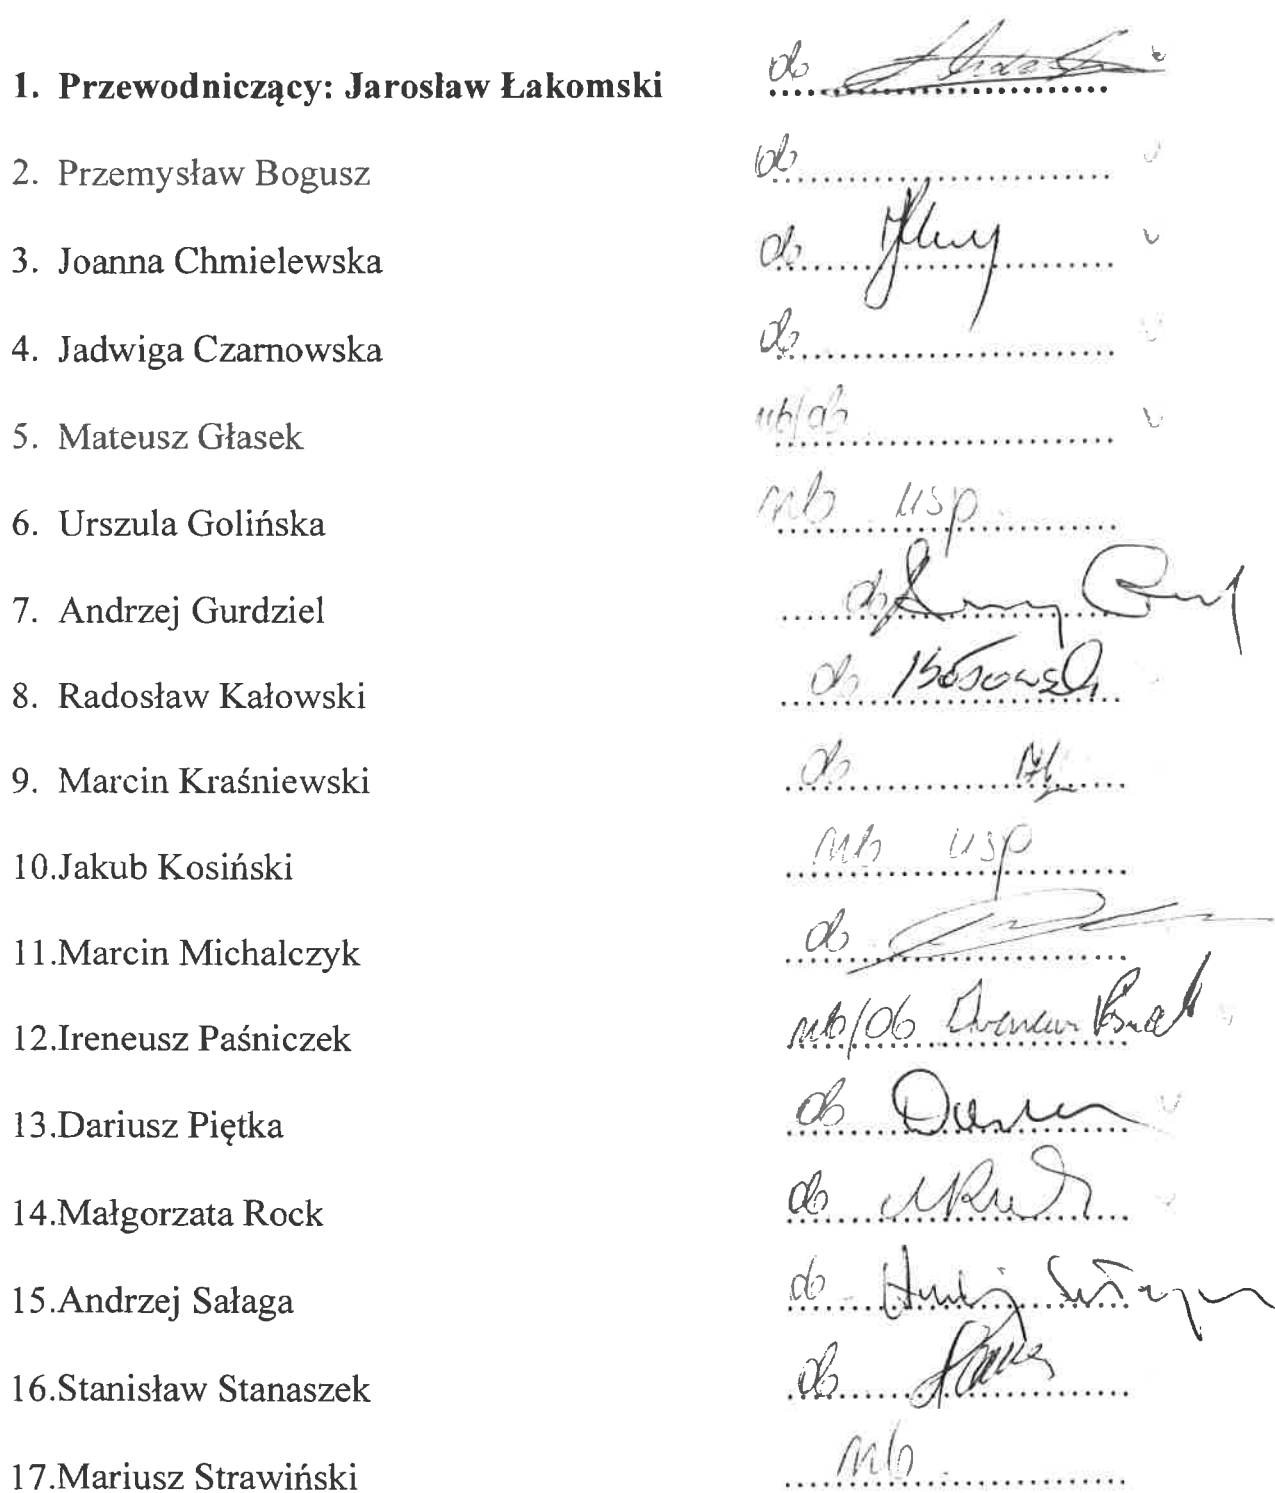 1. Przewodniczący: Jarosław Łakomski ob
2. Przemysław Bogusz ob
3. Joanna Chmielewska ob
4. Jadwiga Czarnowska ob
5. Mateusz Głasek nb/ob
6. Urszula Golińska nb usp
7. Andrzej Gurdziel ob
8. Radosław Kałowski ob
9. Marcin Kraśniewski ob
10.Jakub Kosiński nb usp
11.Marcin Michalczyk ob
12.Ireneusz Paśniczek nb/ob
13.Dariusz Piętka ob
14.Małgorzata Rock ob
15.Andrzej Sałaga ob
16.Stanisław Stanaszek ob
17.Mariusz Strawiński nb